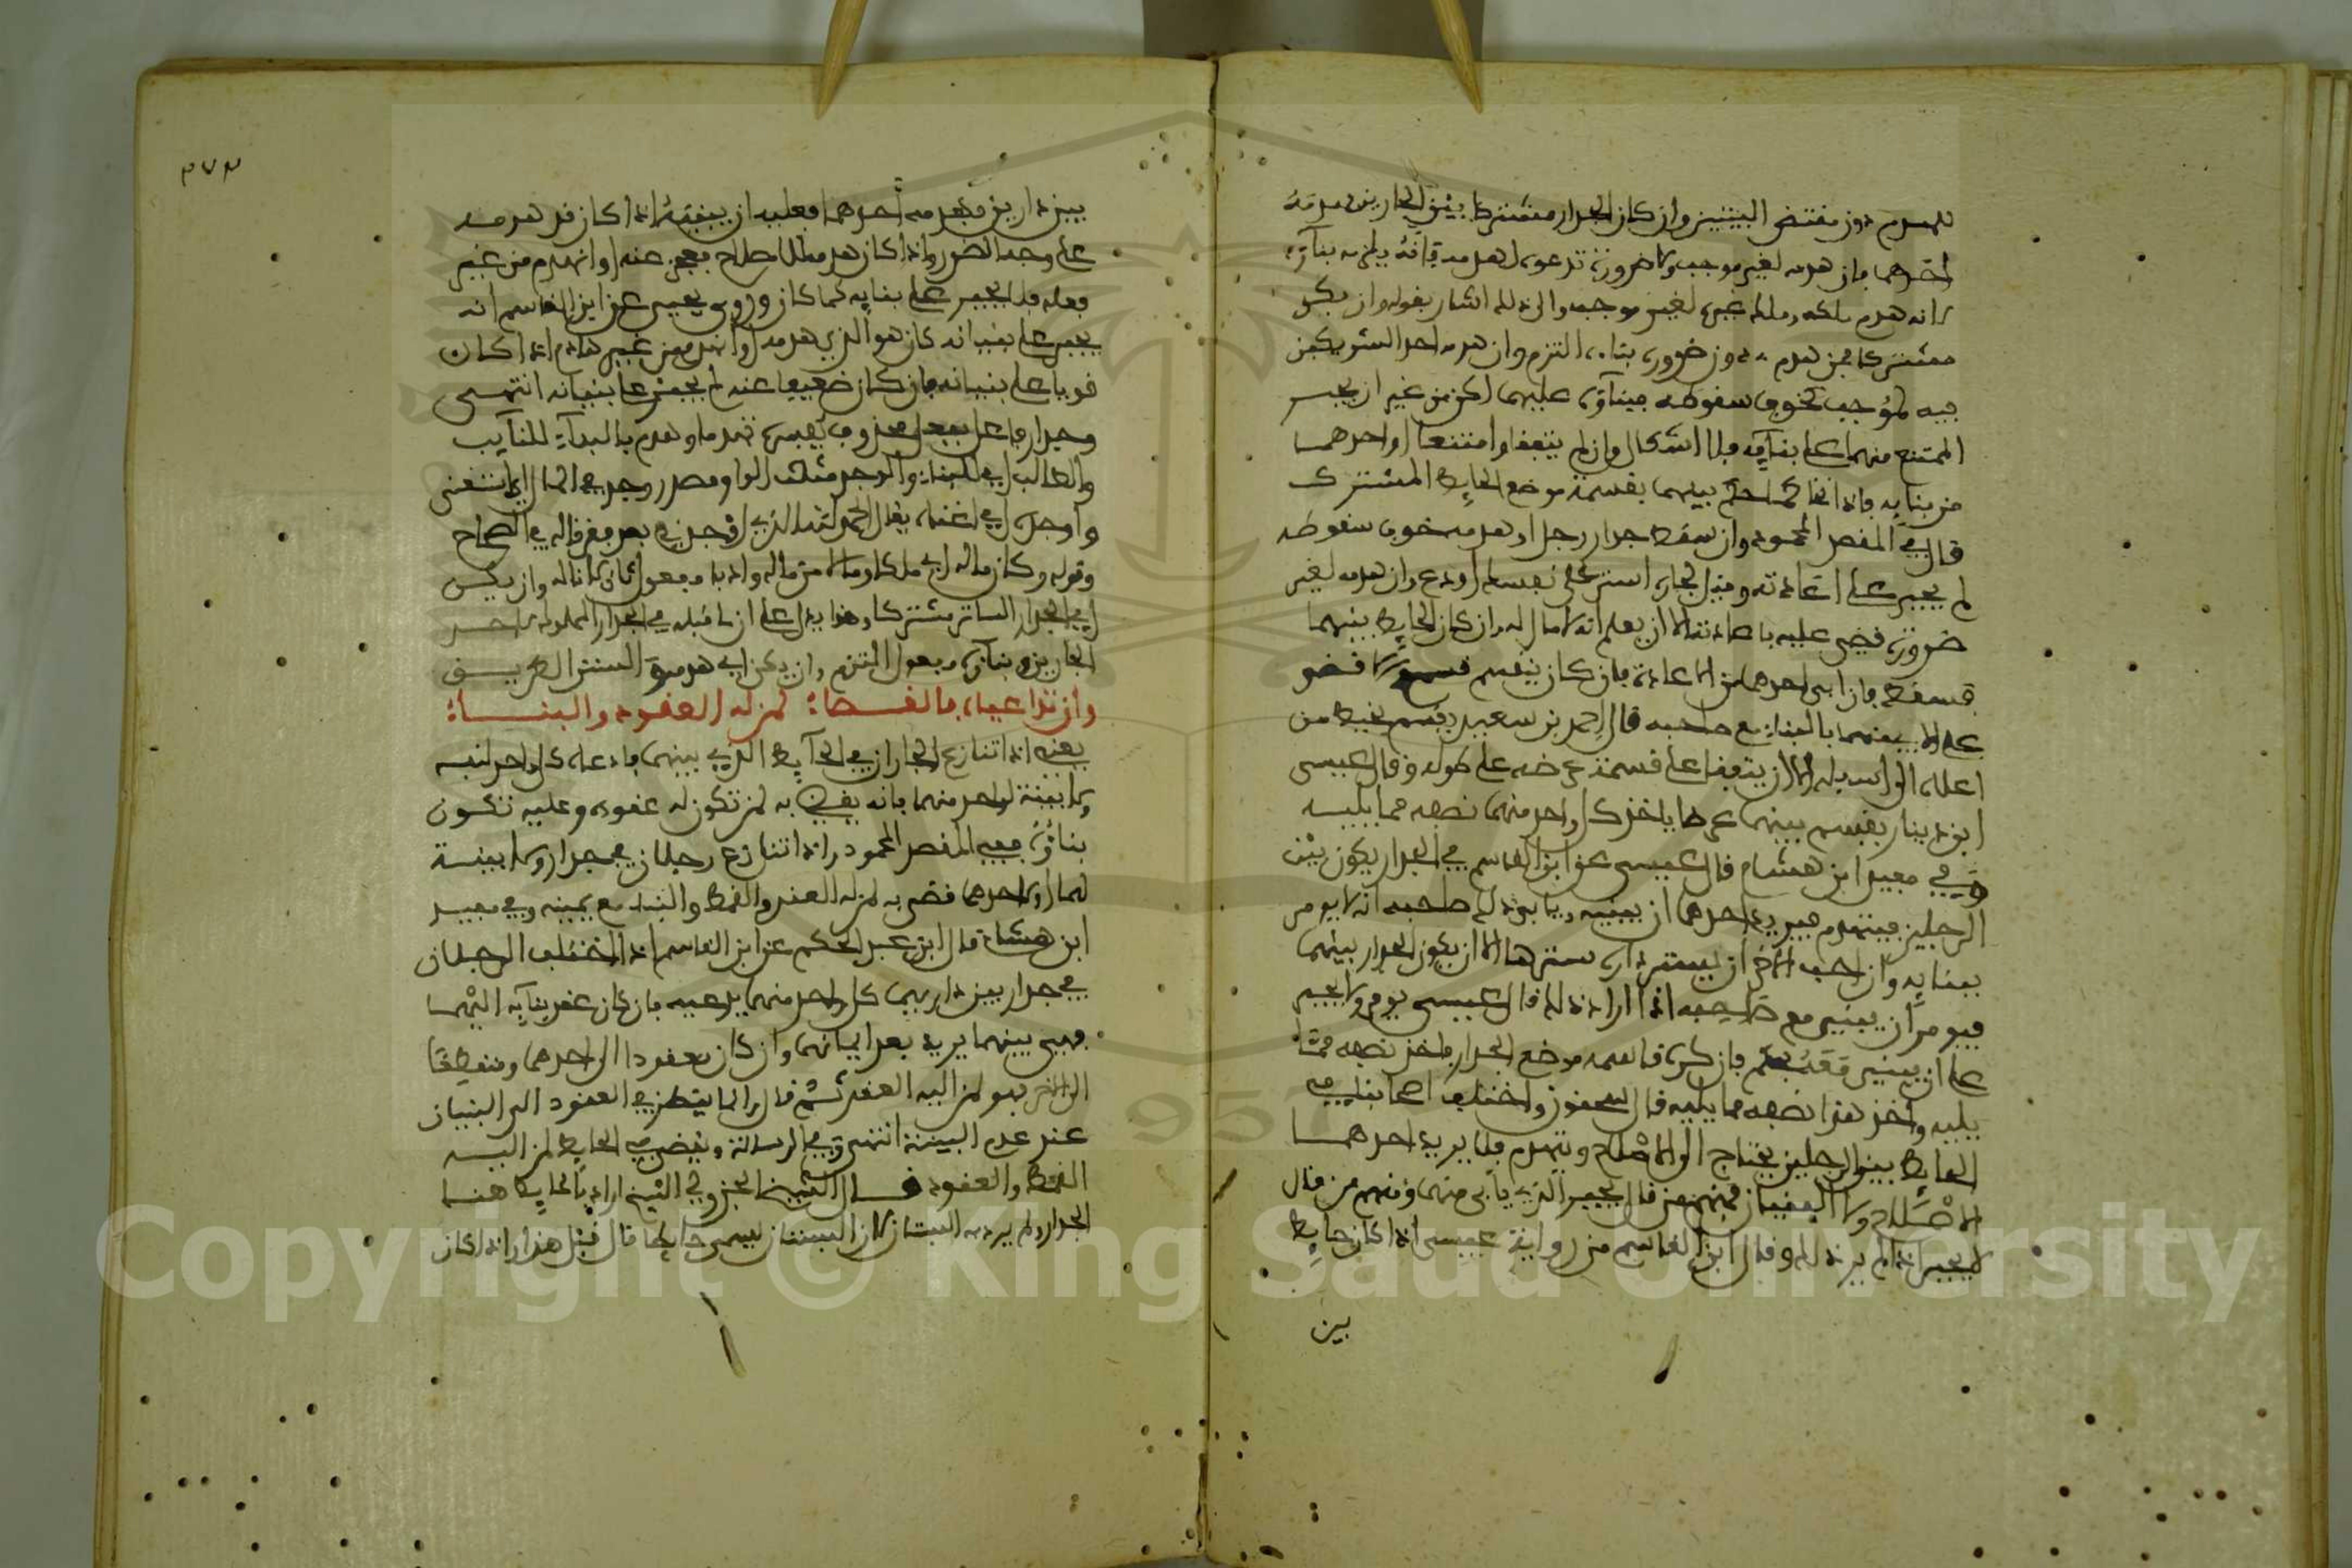 للهدم دون مقتضى البيتين وان كان الجدار مشتركا بين الجارين هدمه
احدهما فان هدمه لغير موجب ولا ضرورة تدعوه لهدمه فانه يلزمه بناؤه
لانه هدم ملكه وملك غيره لغير موجب والى ذلك اشار بقوله وان يكن
مشتركا فمن هدم دون ضرورة بناه التزم وان هدمه احد الشريكين
فيه لموجب كخوف سقوطه فبناؤه عليهما لكن من غير ان يجبر
الممتنع منهما على بنائه فلا اشكال وان لم يتفقا وامتنعا او احدهما
من بنايه فانه بينهما بقسمة موضع الحايط المشترك
قال في المقصد المحمود وان سقط جدار رجل او هدمه خوف سقوطه
لم يجبر على اعادته وقيل لجاره استر على نفسك او دع وان هدمه لغير
ضرورة قضي عليه باعادته الا ان يعلم انه لا مال له وان كان الحايط بينهما
فسقط فان ابى احدهما من الاعادة فان كان ينقسم قسم ولا قضو
على الابي منهما بالبناء مع صاحبه قال احمد بن سعيد ويقسم بخيط من
اعلاه الى اسفله الا ان يتفقا على قسمته عرضه على طوله وقال عيسى
ابن دينار يقسم بينهما عرضا ياخذ كل واحد منهما نصفه مما يليه
وفي مفيد ابن هشام قال عيسى عن ابن القاسم في الجدار يكون بين
الرجلين فينهدم فيريد احدهما ان يبنيه ويابى ذلك صاحبه انه لا يومر
ببنايه وان احب الاخر ان يستر داره سترها الا ان يكون الجدار بينهما
فيومر ان يبني مع صاحبه اذا اراد ذلك قال عيسى يومر ولا يجبر
على ان يبني معه فان كره قاسمه موضع الجدار فاخذ نصفه مما
يليه واخذ هذا نصفه مما يليه قال سحنون واختلف اصحابنا في
الحايط بين الرجلين يحتاج الى الاصلاح وينهدم فلا يريد احدهما
الاصلاح ولا البنيان فمنهم من قال يجبر الذي يابى منهما ومنهم من قال
لا يجبر اذا لم يرد ذلك وقال ابن القاسم من رواية عيسى اذا كان حايط
بين
٣٧٣
بين دارين فهدمه احدهما فعليه ان يبنيه اذا كان قد هدمه
على وجه الضرر واذا كان هدمه للاصلاح فعجز عنه او انهدم من غير
فعله فلا يجبر على بنايه كما كان وروى يحيى عن ابن القاسم انه
يجبر على بنيانه كان هو الذي هدمه او انهدم من غير هدم اذا كان
قويا على بنيانه فان كان ضعيفا عنه لم يجبر على بنيانه انتهى
وجدار فاعل بفعل محذوف يفسره تهدما وهدم بالبناء للنايب
والطالب اي للبناء والوجد مثلث الواو مصدر وجد في المال اي استغنى
واوجده اي اغناه يقال الحمد لله الذي اوجدني بعد فقر قاله في الصحاح
وقوله وكان ماله اي ملكا وما لا من ماله وادبا مفعول ثان لاناله وان يكن
اي الجدار الساتر مشتركا وهذا يدل على ان ما قبله في الجدار المملوك لاحد
الجارين وبناه مفعول التزم وان يكن اي هدمه السنن الطريق
وان تداعياه فالقضاء لمن له العقود والبناء
يعني اذا تنازع الجاران في الحايط الذي بينهما فادعاه كل واحد لنفسه
ولا بينة لواحد منهما فانه يقضى به لمن تكون له عقوده وعليه تكون
بناؤه ففي المقصد المحمود واذا تنازع رجلان في جدار ولا بينة
لهما او لاحدهما قضي به لمن له العقد والقمط والبناء مع يمينه وفي مفيد
ابن هشام قال ابن عبد الحكم عن ابن القاسم اذا اختلف الرجلان
في جدار بين داريهما كل واحد منهما يدعيه فان كان عقد بنايه اليهما
فهي بينهما يريد بعد ايمانهما وان كان معقودا الى احدهما ومنقطعا
الى الاخر فهو لمن اليه العقد ثم قال وانما ينظر في العقود الى البنيان
عند عدم البينة انتهى وفي الرسالة ويقضى في الحايط لمن اليه
القمط والعقود قال الشيخ الجزولي الشيخ اراد بالحايط هنا
الجدار ولم يرد به البستان لان البستان يسمى حايطا قال قيل هذا اذا كان